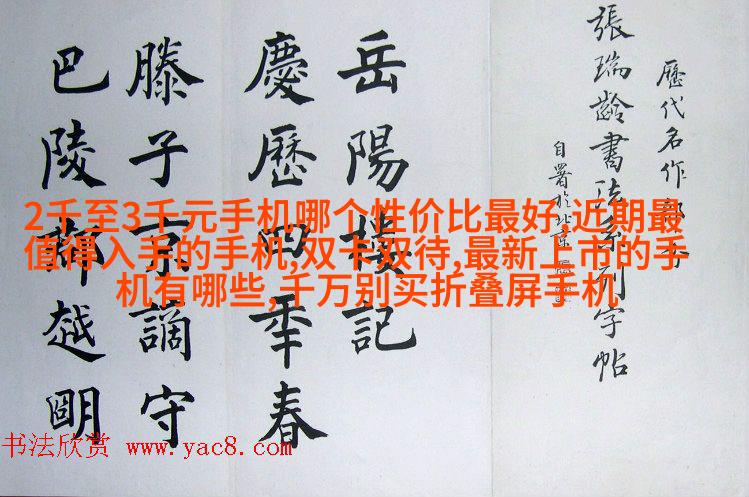 歷代名作
張瑞齡書法系列字帖
自署於北京
岳陽樓記
慶歷四年春
滕子京謫守
巴陵郡越明
2千至3千元手机哪个性价比最好,近期最
值得入手的手机,双卡双待,最新上市的手
机有哪些,千万别买折叠屏手机
书法欣赏 www.yac8.com